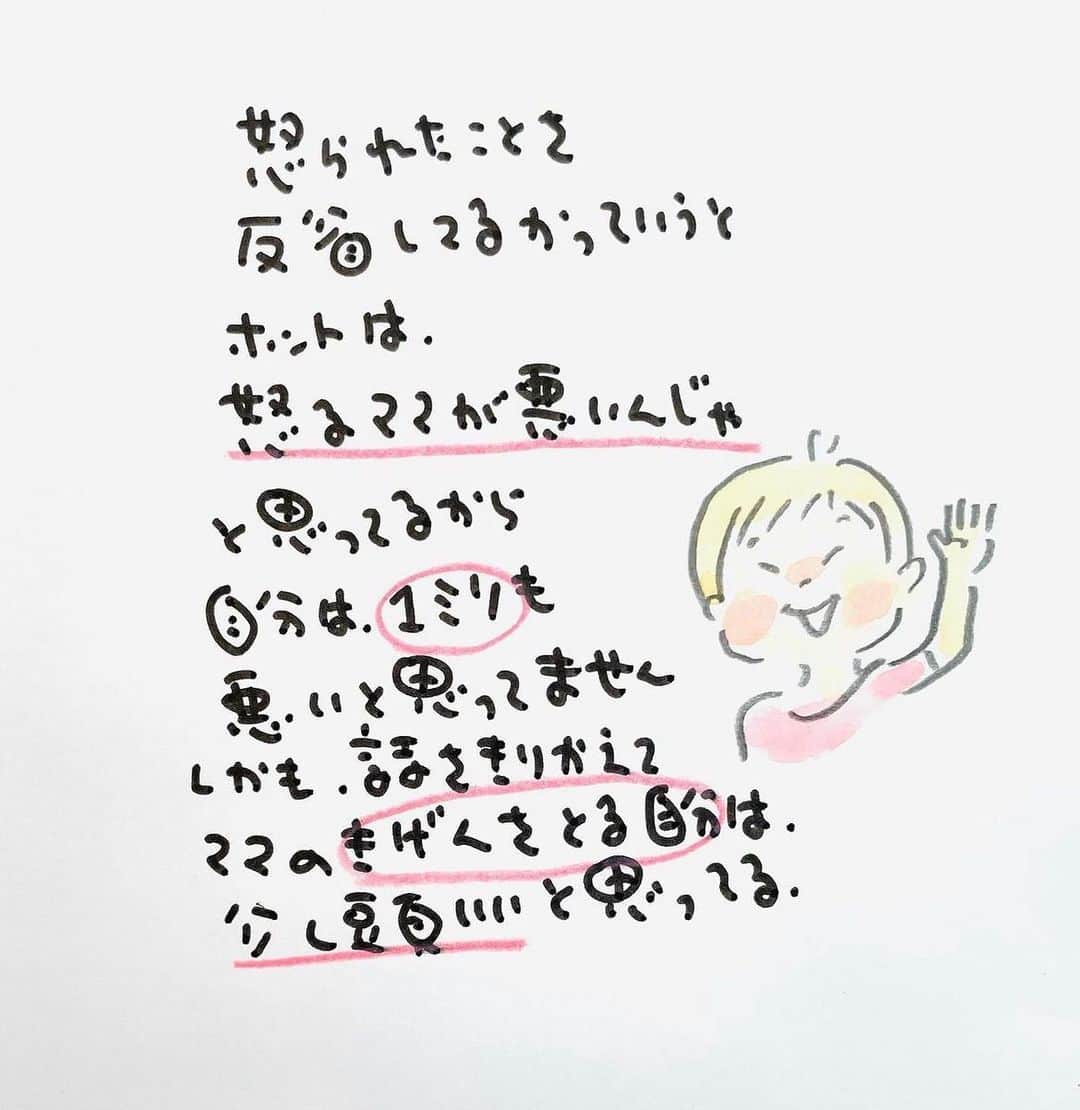 怒られたことを
反省してるかっていうと
ホントは.
怒るママが悪いんじゃ
と思ってるから
自分は.1ミリも
悪いと思ってません
しかも.話をきりかえて
ママのきげんをとる自分は.
少し偉いと思ってる.